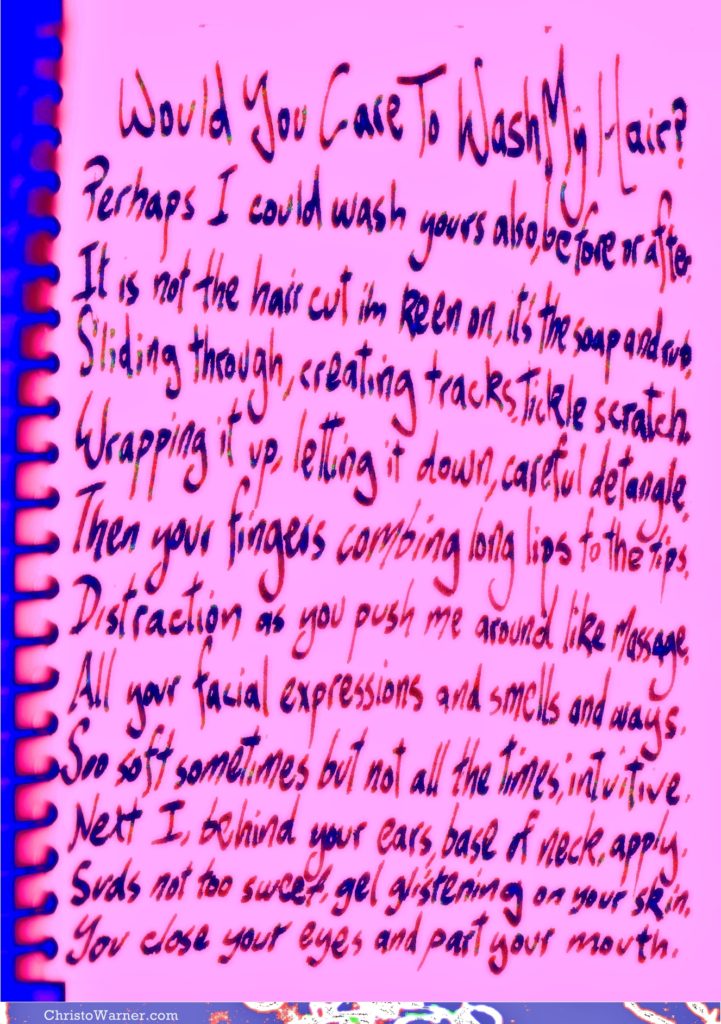 Would You Care To Wash My Hair?
Perhaps I could wash yours also, before or after.
It is not the hair cut im keen on, it's the soap and rub.
Sliding through, creating tracks, tickle scratch.
Wrapping it up, letting it down, careful detangle.
Then your fingers combing long lips to the tips.
Distraction as you push me around like massage.
All your facial expressions and smells and ways.
Soo soft sometimes but not all the times, intuitive.
Next I, behind your ears, base of neck, apply.
Suds not too sweet, gel glistening on your skin.
You close your eyes and part your mouth.
ChristoWarner.com